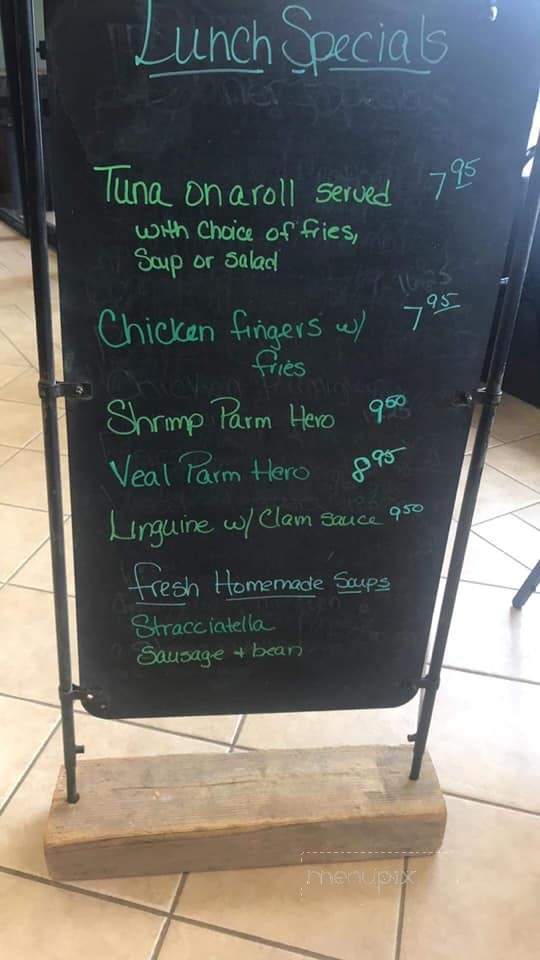 Lunch Specials
Tuna on a roll served 7 95
with Choice of fries,
Soup or salad
Chicken fingers w/ 7 95
fries
Shrimp Parm Hero 9 50
Veal Parm Hero 8 95
Linguine w/ Clam sauce 9 50
fresh Homemade Soups
Stracciatella
Sausage + bean
menupix